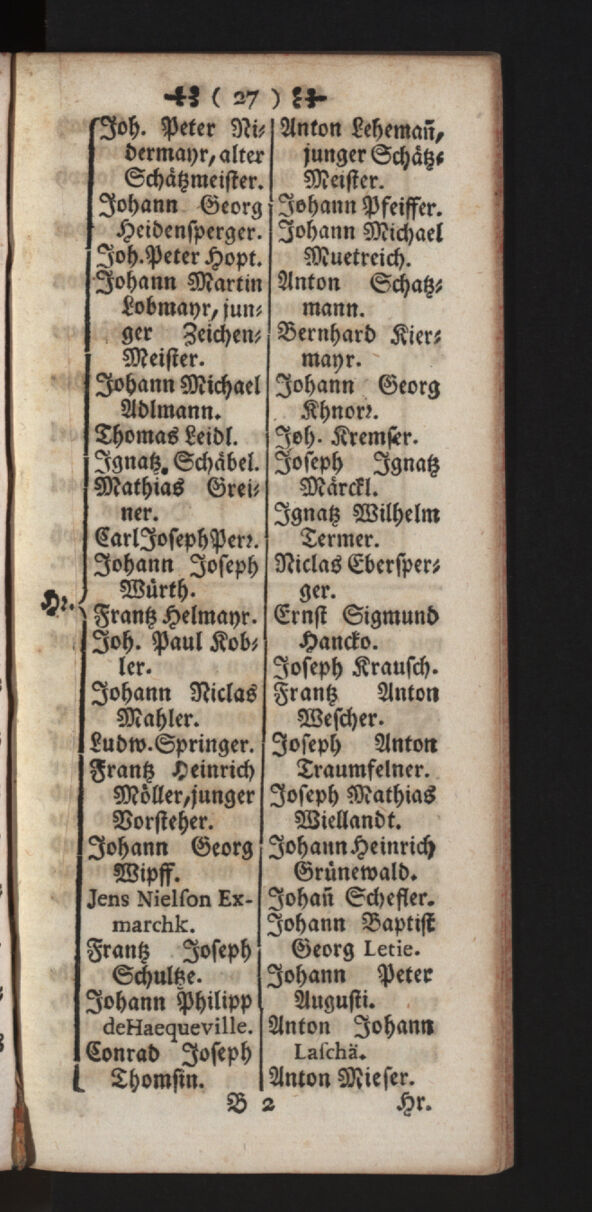 ( 27 )
Joh. Peter Ni⸗
dermayr, alter
Schätzmeister.
Johann Georg
Heidensperger.
Joh. Peter Hopt.
Johann Martin
Lobmayr, jun⸗
ger Zeichen⸗
Meister.
Johann Michael
Adlmann.
Thomas Leidl.
Ignatz. Schäbel.
Mathias Grei⸗
ner.
Carl Joseph Perꝛ.
Johann Joseph
Würth.
Hr.
Frantz Helmayr.
Joh. Paul Kob⸗
ler.
Johann Niclas
Mahler.
Ludw. Springer.
Frantz Heinrich
Möller, junger
Vorsteher.
Johann Georg
Wipff.
Jens Nielſon Ex-
marchk.
Frantz Joseph
Schultze.
Johann Philipp
deHaequeville.
Conrad Joseph
Thomsin.
Anton Lehemañ,
junger Schätz⸗
Meister.
Johann Pfeiffer.
Johann Michael
Muetreich.
Anton Schatz⸗
mann.
Bernhard Kier⸗
mayr.
Johann Georg
Khnorꝛ.
Joh. Kremser.
Joseph Ignatz
Märckl.
Ignatz Wilhelm
Termer.
Niclas Ebersper⸗
ger.
Ernst Sigmund
Hancko.
Joseph Krausch.
Frantz Anton
Wescher.
Joseph Anton
Traumfelner.
Joseph Mathias
Wiellandt.
Johann Heinrich
Grünewald.
Johañ Schefler.
Johann Baptist
Georg Letie.
Johann Peter
Augusti.
Anton Johann
Laſchä.
Anton Mieser.
B 2 Hr.